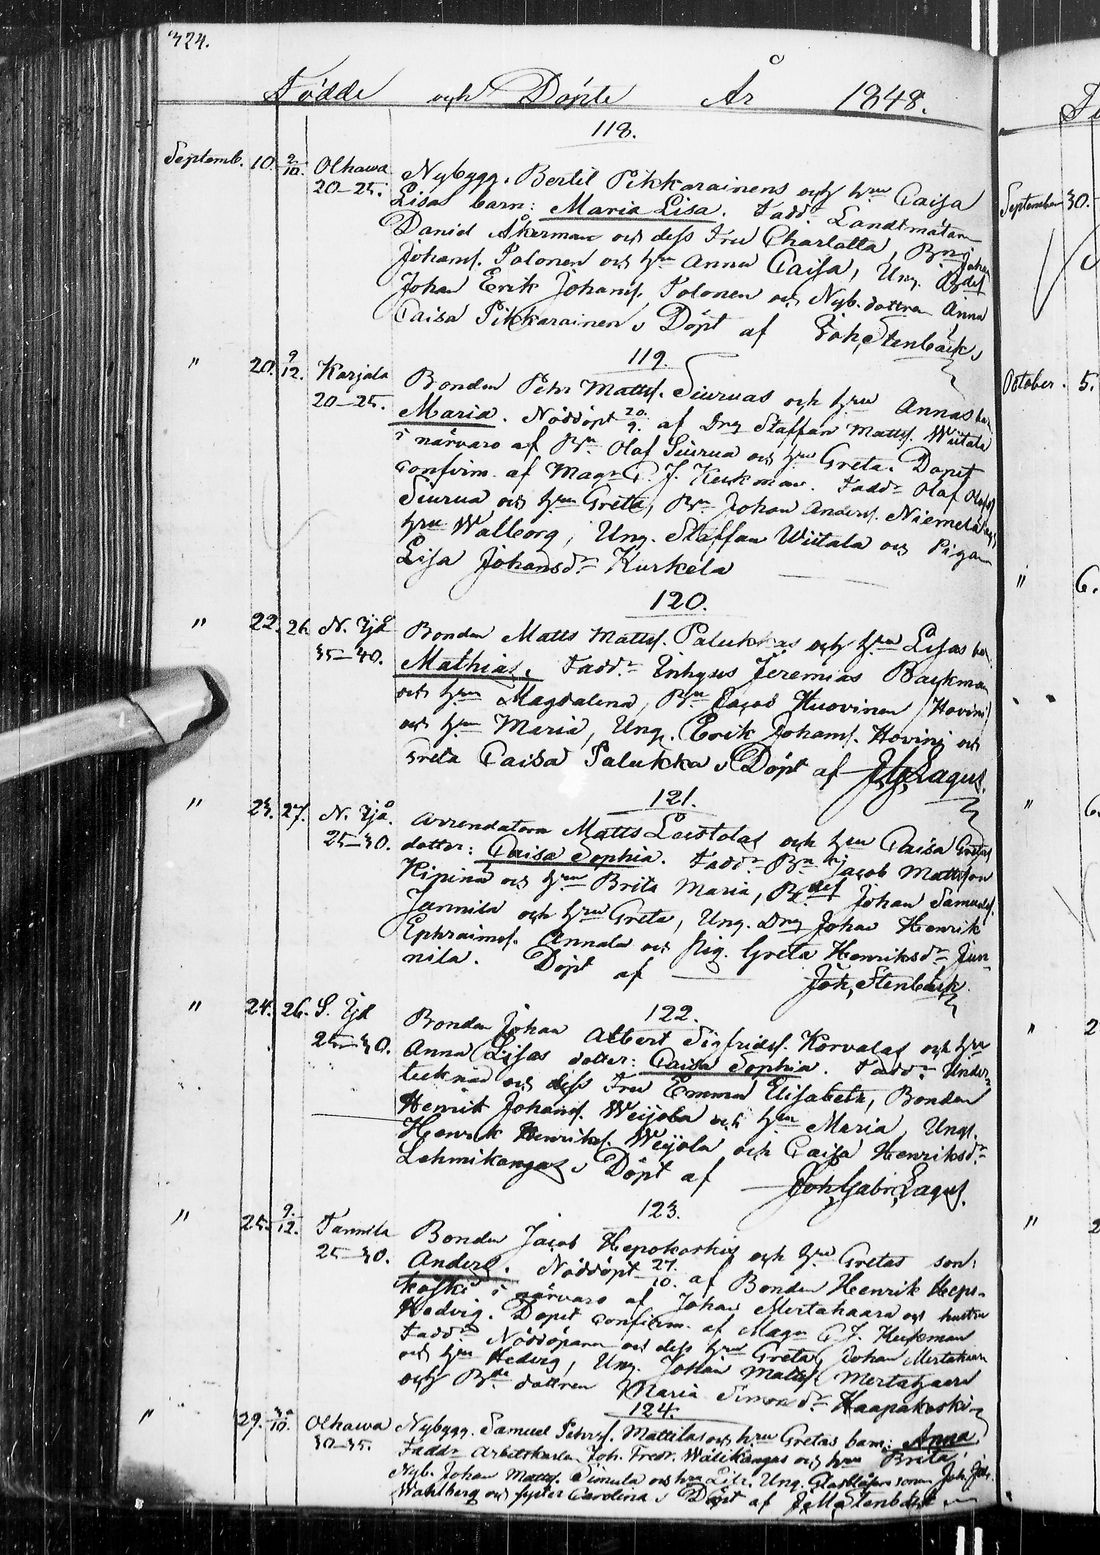 324.
Födde och Döpte År 1848.
118.
Septemb. 10. 2/10. Olhawa Nybygg. Bertil Pikkarainens och hru Caisa
20–25. Lisas barn: Maria Lisa. Fadd. Landtmätaren
Daniel Åkerman och dess Fru Charlotta, Bn
Johans. Polonen och hru Anna Caisa, Ung. Bdes
Johan Erik Johans. Polonen och Nyb. dottren Anna
Caisa Pikkarainen. Döpt af Joh. Stenbäck.
119.
" 20. 9/12. Karjala Bonden Petr Matts. Siuruas och hru Annas
20–25. Maria. Nöddöpt 20/9. af Dng Staffan Matts. Wiitala
i närvaro af Bn Olof Siurua och hru Greta. Dopet
confirm. af Magr C. J. Keckman. Fadd. Olof Olofss
Siurua och hru Greta, Bn Johan Anders. Niemelä
hru Walborg, Ung. Staffan Wiitala och Pigan
Lisa Johansdr Kurkela
120.
" 22. 26. N. Ijå Bonden Matts Matts. Palukkas och hru Lisas
35–40. Mathias. Fadd. Inhyses Jeremias Backman
och hru Magdalena, Bn Jacob Huovinen (Hovini)
och hru Maria, Ung. Erik Johans. Hovini och
Greta Caisa Palukka. Döpt af J. G. Lagus.
121.
" 23. 27. N. Ijå. Arrendatorn Matts Loistolas och hru Caisa Gretas
25–30. dotter: Caisa Sophia. Fadd. Bn Jacob Mattsson
Kipinä och hru Brita Maria, Bdes Johan Samuels.
Junnila och hru Greta, Ung. Dng Johan Henrik
Ephraims. Annala och Pig. Greta Henriksdr Jun-
nila. Döpt af Joh. Stenbäck.
122.
" 24. 26. S. Ijå Bonden Johan Albert Sigfrids. Korvalas och hru
25–30. Anna Lisas dotter: Caisa Sophia. Fadd. Under-
tecknad och dess Fru Emma Elisabeth, Bonden
Henrik Johans. Weijola och hru Maria, Ungl.
Henrik Henriks. Weijola och Caisa Henriksdr
Lehmikangas. Döpt af Joh. Gabr. Lagus.
123.
" 25. 9/12. Tannila Bonden Jacob Hepokoskis och hru Gretas son:
25–30. Anders. Nöddöpt 27/10. af Bonden Henrik Hepo-
koski i närvaro af Johan Mertahaara och hustru
Hedvig. Dopet confirm. af Magr C. J. Keckman
Fadd. Nöddöparen och dess hru Greta, Johan Mertahaara
och hru Hedvig, Ung. Johan Matts. Mertahaara
och Bde dottren Maria Simonsdr Haapakoski
124.
" 29. 30/10. Olhawa Nybygg. Samuel Petters. Mattilas och hru Gretas barn: Anna
30–35. Faddr Arbetskarlen Joh. Fredr. Wälikangas och hru Brita,
Nyb. Johan Matts. Simula och hru Lisa, Ung. Glasblåsare sonen Joh.
Wahlberg och syster Carolina. Döpt af J. M. Stenbäck
September 30.
October. 5.
" 6.
"
"
"